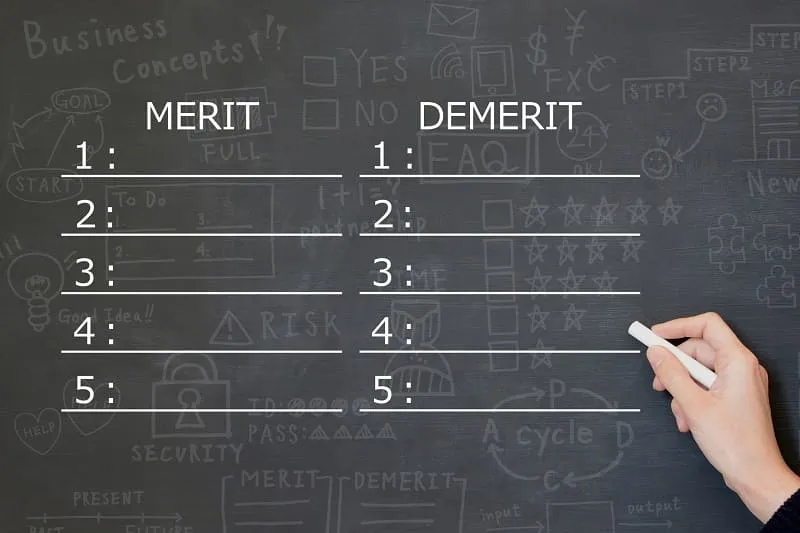 Business
Concepts!!
YES
NO
$
¥
FXC
STEP1
STEP2
STEP
M&A
GOAL
START
MERIT
DEMERIT
1:
1:
2:
2:
3:
3:
4:
4:
5:
5:
FULL
FAQ
24h
OK!
New
To Do
1.
2.
3.
4.
1+1=?
partnership
TIME
Good Idea!!
RISK
HELP
SECURITY
ID:
PASS:
P
A cycle D
C
MERIT
DEMERIT
PRESENT
PAST
FUTURE
input
output